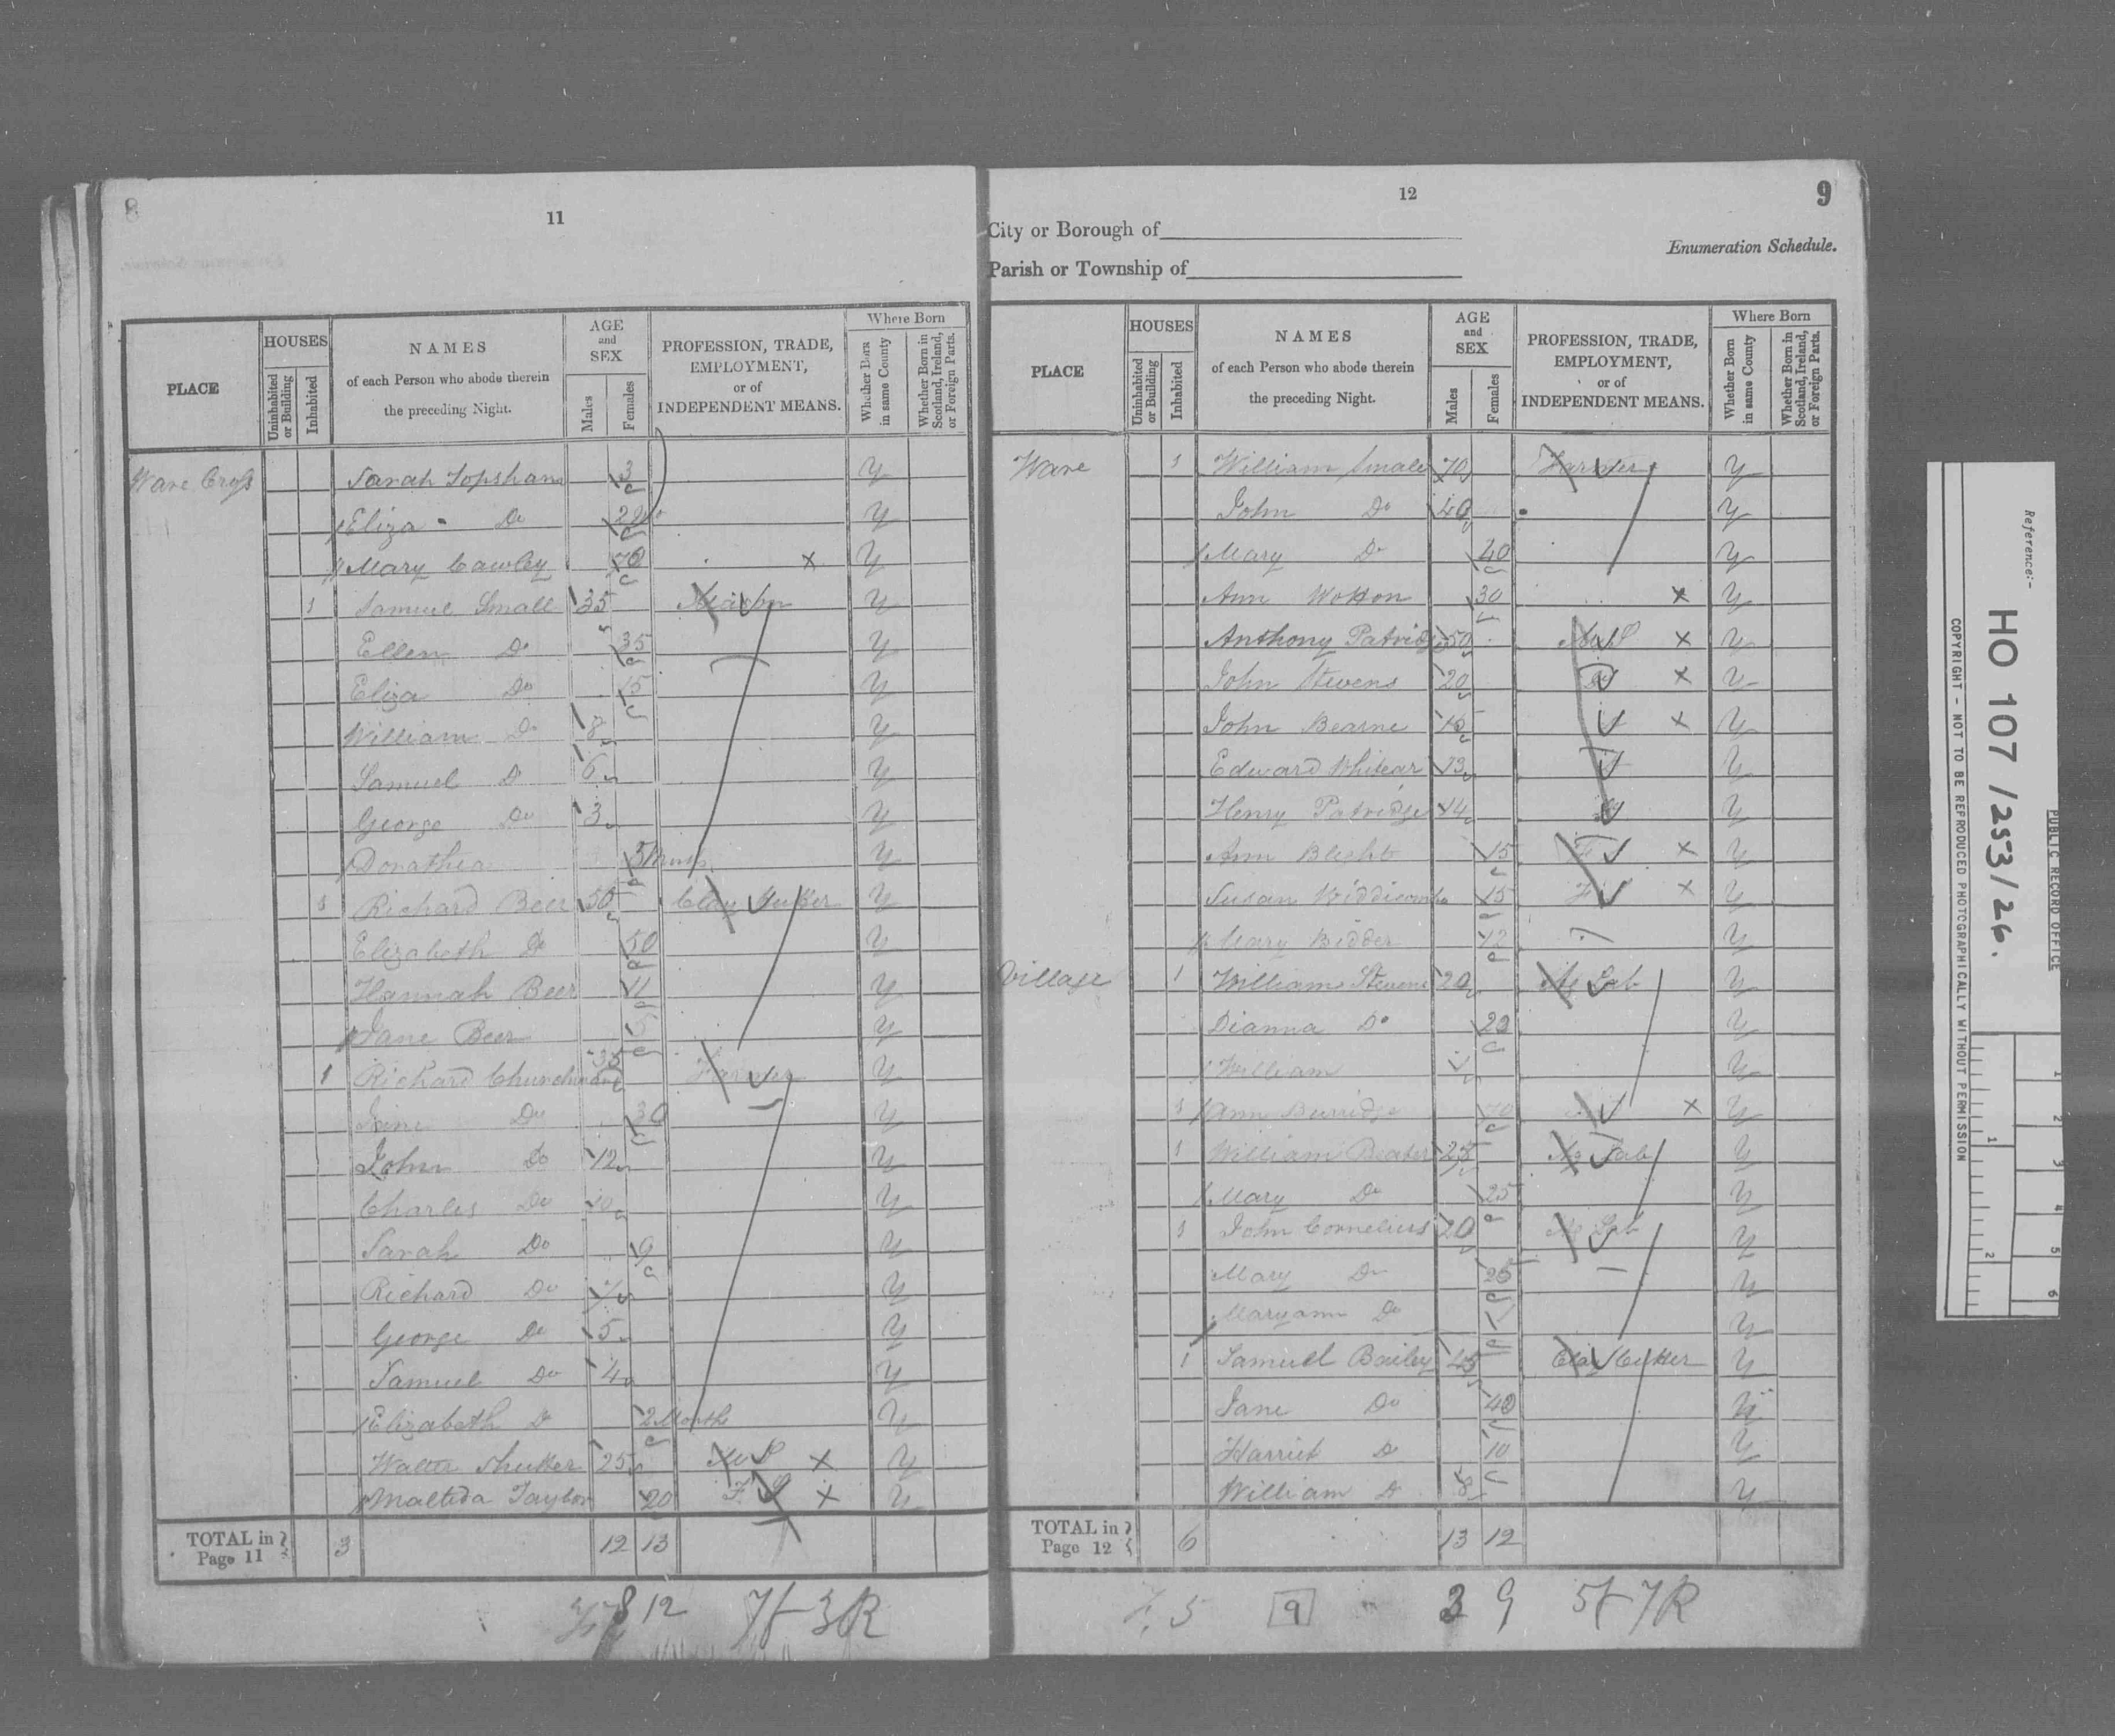 8
11
PLACE
HOUSES
Uninhabited or Building
Inhabited
NAMES
of each Person who abode therein
the preceding Night.
AGE
and
SEX
Males
Females
PROFESSION, TRADE,
EMPLOYMENT,
or of
INDEPENDENT MEANS.
Where Born
Whether Born in same County
Whether Born in Scotland, Ireland, or Foreign Parts.
Ware Cross Sarah Topsham 3 Y
Eliza Do Y
Mary Cawley 70 Y
1 Samuel Small 35 Mason Y
Ellen Do 35 Y
Eliza Do 15 Y
William Do 8 Y
Samuel Do 6 Y
George Do 3 Y
Dorathea 5 Y
1 Richard Beer 50 Clay Cutter Y
Elizabeth Do 50 Y
Hannah Beer 11 Y
Jane Beer 5 Y
1 Richard 35 Farmer Y
Do 30 Y
John Do 12 Y
Charles Do 10 Y
Sarah Do 9 Y
Richard Do Y
George Do 5 Y
Samuel Do 4 Y
Elizabeth Do 2 Month Y
Walter Shutter 25 M S Y
Maltida Taylor 20 F S Y
TOTAL in Page 11 3 12 13
8 12 7f-3R
12
9
City or Borough of
Parish or Township of
Enumeration Schedule.
PLACE
HOUSES
Uninhabited or Building
Inhabited
NAMES
of each Person who abode therein
the preceding Night.
AGE
and
SEX
Males
Females
PROFESSION, TRADE,
EMPLOYMENT,
or of
INDEPENDENT MEANS.
Where Born
Whether Born in same County
Whether Born in Scotland, Ireland, or Foreign Parts.
Ware 1 William Smale 70 Farmer Y
John Do 40 Y
Mary Do 40 Y
Ann Wotton 30 Y
Anthony Patridge 50 M S Y
John Stevens 20 Y
John Bearne 15 Y
Edward Whitear 13 Y
Henry Patridge 14 Y
Ann Blight 15 F S Y
Susan Widdicombe 15 F S Y
Mary Bidder 12 Y
Village 1 William Stevens 20 Ag Lab Y
Dianna Do 20 Y
William Y
1 Ann Burridge Y
1 William Beater 25 Ag Lab Y
Mary Do 25 Y
1 John Cornelius 20 Ag Lab Y
Mary Do 25 Y
Maryann Do 1 Y
1 Samuel Bailey 45 Clay Cutter Y
Jane Do 40 Y
Harriet Do 10 Y
William Do 8 Y
TOTAL in Page 12 6 13 12
5 9 3 9 5f-7R
Reference:-
HO 107 / 253/26.
PUBLIC RECORD OFFICE
COPYRIGHT - NOT TO BE REPRODUCED PHOTOGRAPHICALLY WITHOUT PERMISSION
1 2
1 2 3 4 5 6